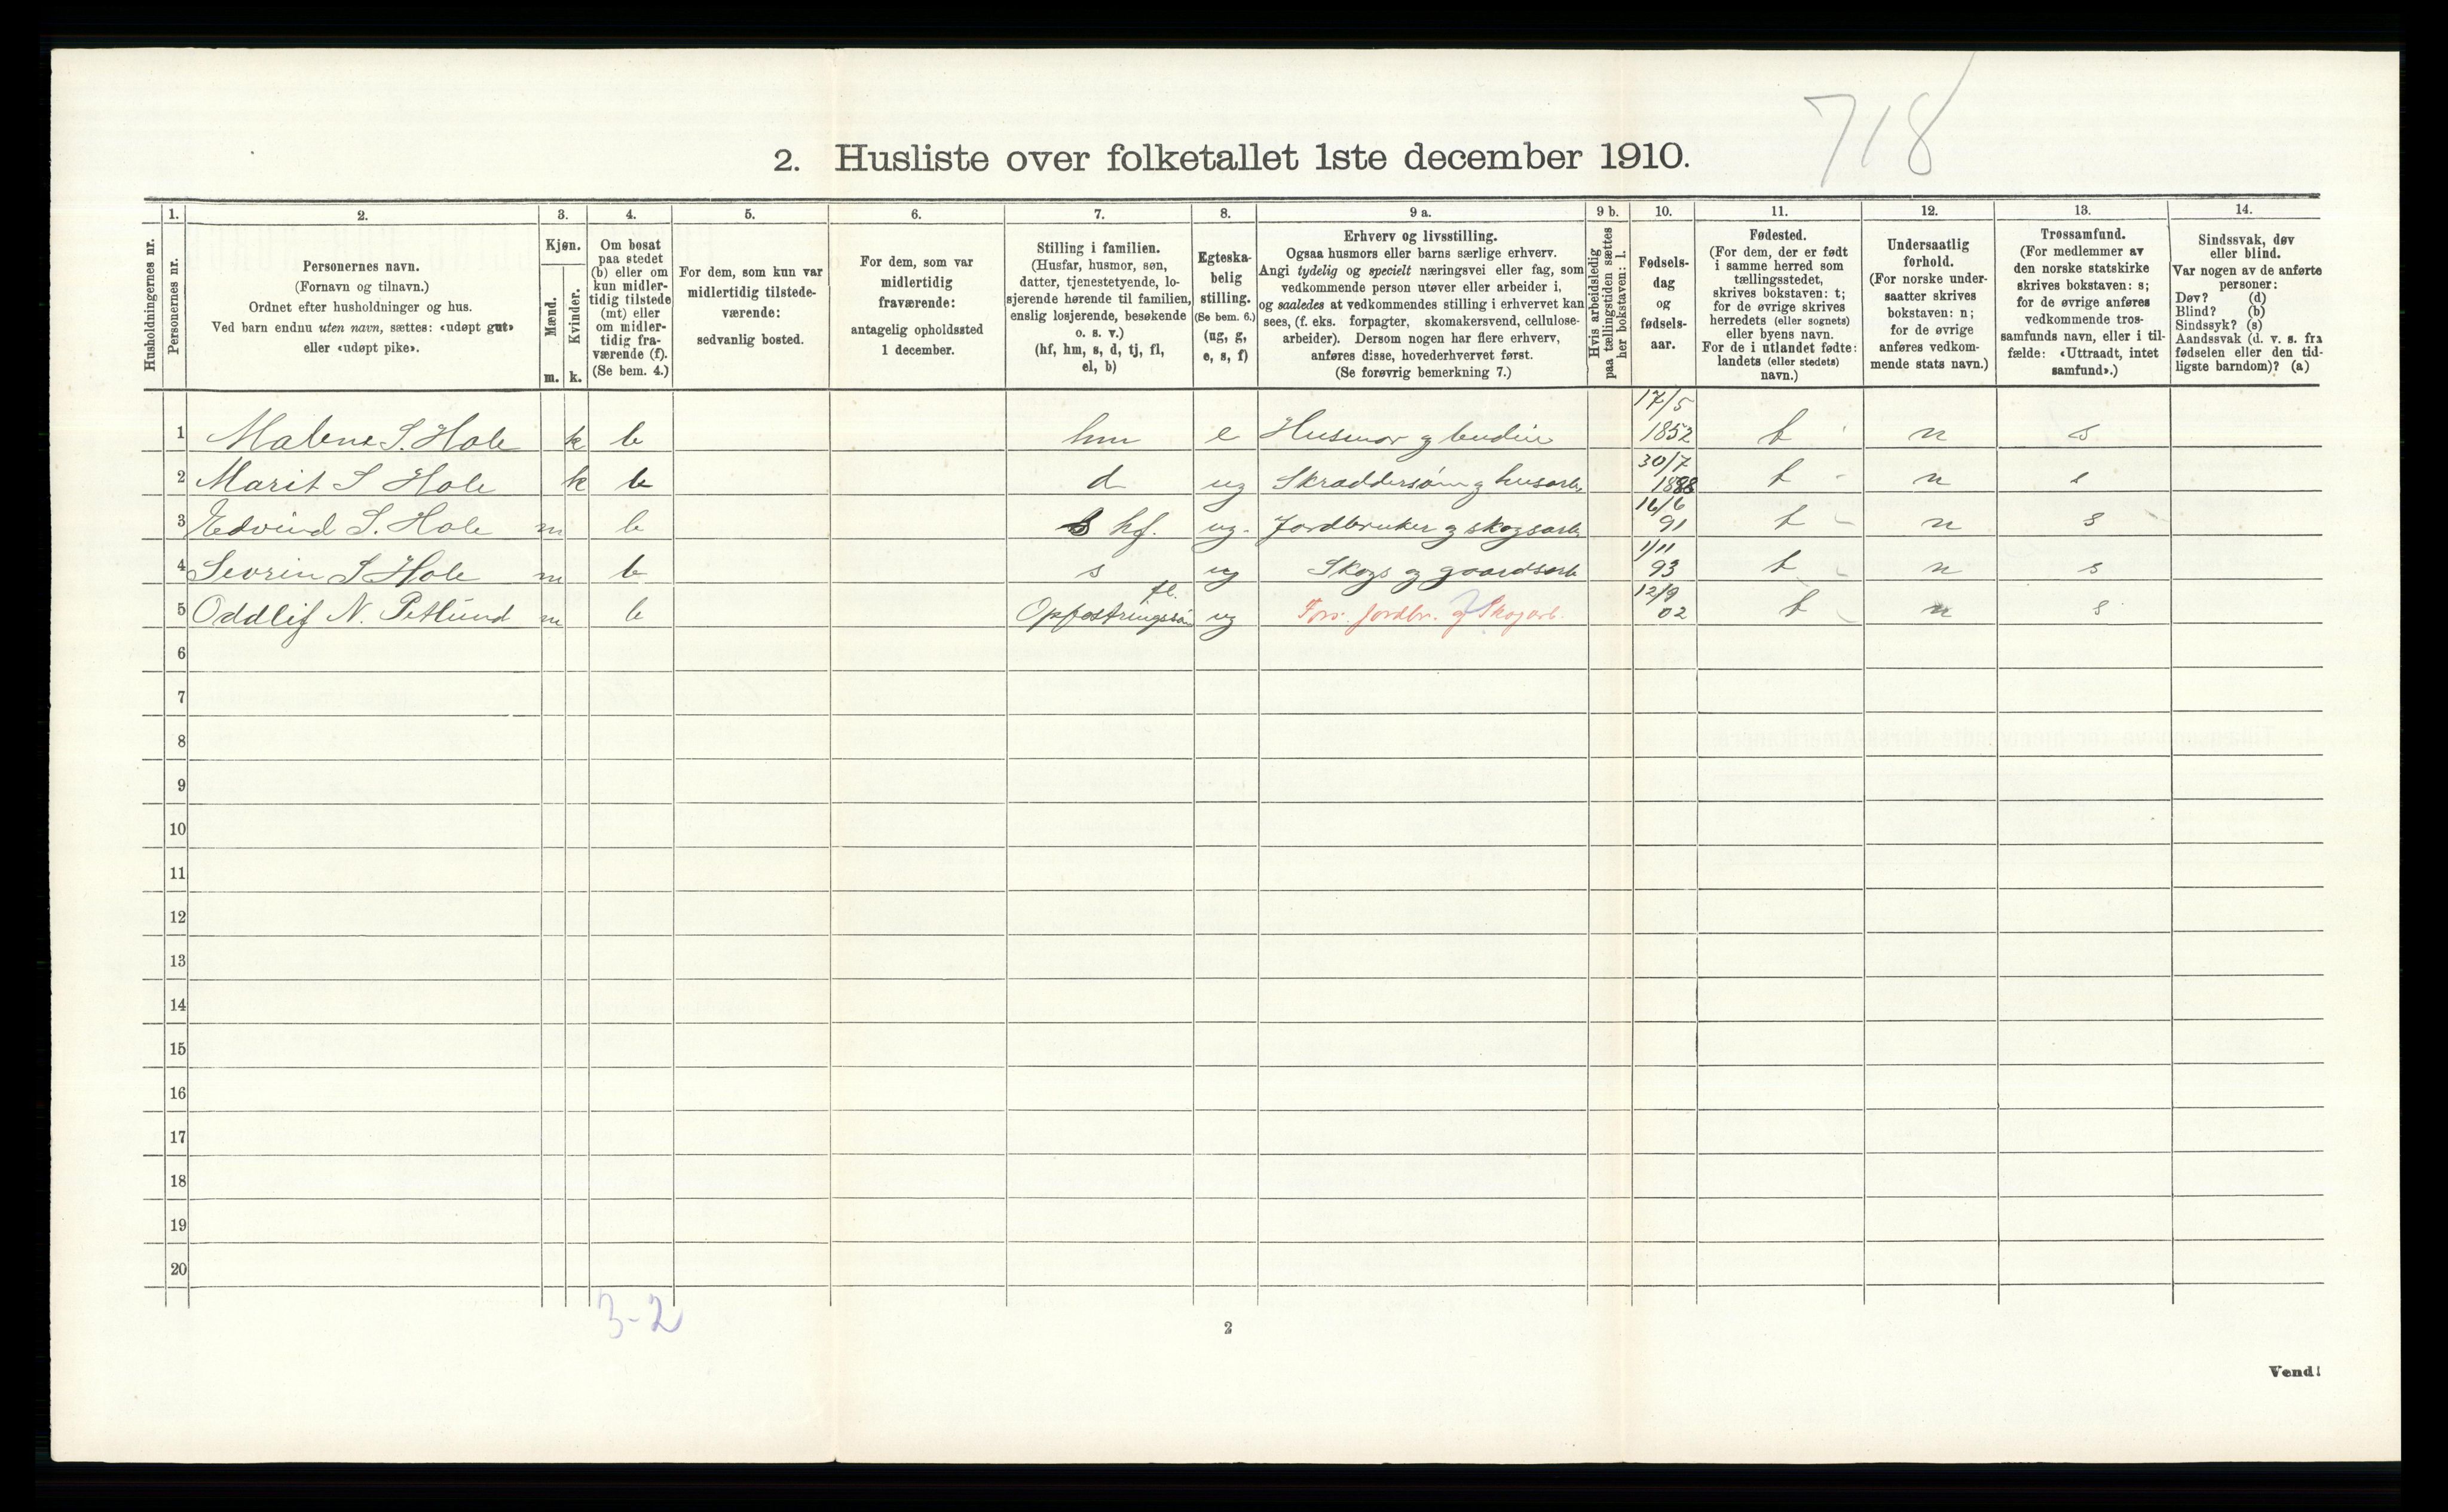 718
2. Husliste over folketallet 1ste december 1910.
Husholdningernes nr.
1. Personernes nr.
2. Personernes navn.
(Fornavn og tilnavn.)
Ordnet efter husholdninger og hus.
Ved barn endnu uten navn, sættes: «udøpt gut»
eller «udøpt pike».
3. Kjøn.
Mænd. m.
Kvinder. k.
4. Om bosat
paa stedet
(b) eller om
kun midler-
tidig tilstede
(mt) eller
om midler-
tidig fra-
værende (f).
(Se bem. 4.)
5. For dem, som kun var
midlertidig tilstede-
værende:
sedvanlig bosted.
6. For dem, som var
midlertidig
fraværende:
antagelig opholdssted
1 december.
7. Stilling i familien.
(Husfar, husmor, søn,
datter, tjenestetyende, lo-
sjerende hørende til familien,
enslig losjerende, besøkende
o. s. v.)
(hf, hm, s, d, tj, fl,
el, b)
8. Egteska-
belig
stilling.
(Se bem. 6.)
(ug, g,
e, s, f)
9 a. Erhverv og livsstilling.
Ogsaa husmors eller barns særlige erhverv.
Angi tydelig og specielt næringsvei eller fag, som
vedkommende person utøver eller arbeider i,
og saaledes at vedkommendes stilling i erhvervet kan
sees, (f. eks. forpagter, skomakersvend, cellulose-
arbeider). Dersom nogen har flere erhverv,
anføres disse, hovederhvervet først.
(Se forøvrig bemerkning 7.)
9 b. Hvis arbeidsledig
paa tællingstiden sættes
her bokstaven: l.
10. Fødsels-
dag
og
fødsels-
aar.
11. Fødested.
(For dem, der er født
i samme herred som
tællingsstedet,
skrives bokstaven: t;
for de øvrige skrives
herredets (eller sognets)
eller byens navn.
For de i utlandet fødte:
landets (eller stedets)
navn.)
12. Undersaatlig
forhold.
(For norske under-
saatter skrives
bokstaven: n;
for de øvrige
anføres vedkom-
mende stats navn.)
13. Trossamfund.
(For medlemmer av
den norske statskirke
skrives bokstaven: s;
for de øvrige anføres
vedkommende tros-
samfunds navn, eller i til-
fælde: «Uttraadt, intet
samfund».)
14. Sindssvak, døv
eller blind.
Var nogen av de anførte
personer:
Døv? (d)
Blind? (b)
Sindssyk? (s)
Aandssvak (d. v. s. fra
fødselen eller den tid-
ligste barndom)? (a)
1 Malene S. Hole k b hm e Husmor g 17/5 1852 t n s
2 Marit S Hole k b d ug Skræddersøm g husarb. 30/7 1888 t n s
3 Edvind S. Hole m b hf. ug. Jordbruker g skogsarb 16/6 91 t n s
4 Sevrin S Hole m b s ug Skogs og gaardsarb 1/11 93 t n s
5 Oddlif N. Petlund m b Opfostringssøn fl. ug Fors. jordbr. og Skogarb. 12/9 02 t n s
6
7
8
9
10
11
12
13
14
15
16
17
18
19
20
3-2
2
Vend!